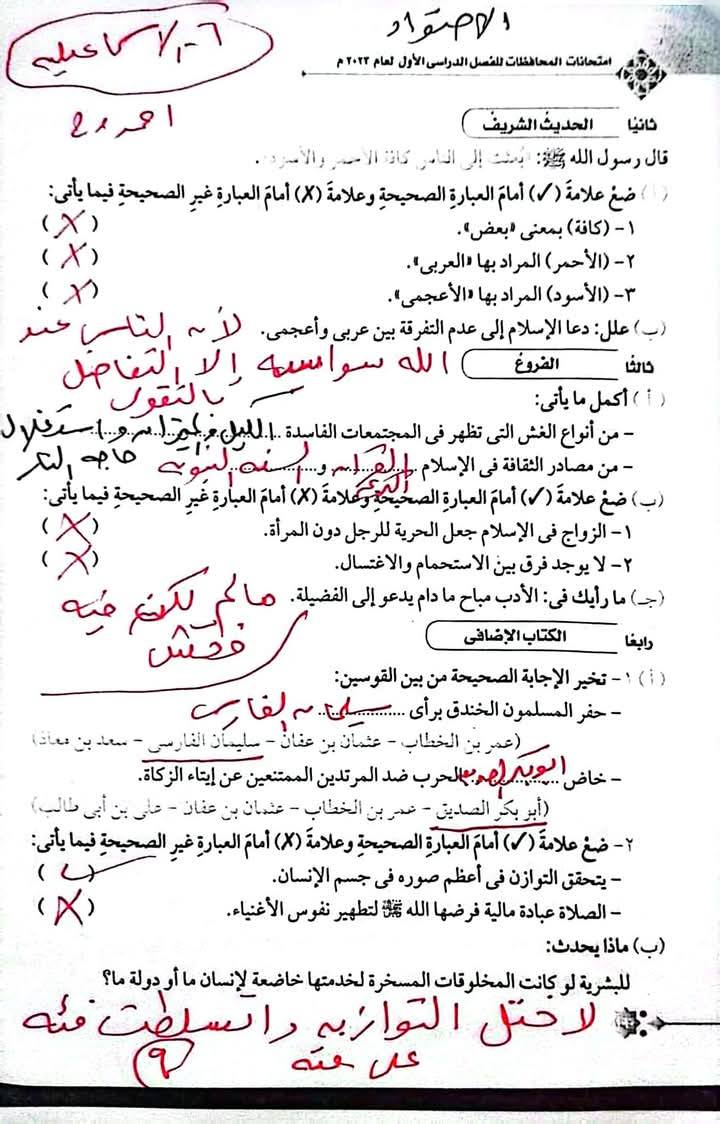 الاحتواء
٦- الاسماعيليه
امتحانات المحافظات للفصل الدراسى الأول لعام ٢٠٢٣ م
احمد
ثانيًا الحديث الشريف
قال رسول الله ﷺ: «بُعثت إلى الناس كافة الأحمر والأسود».
(أ) ضعْ علامةَ (✓) أمامَ العبارةِ الصحيحةِ وعلامةَ (X) أمامَ العبارةِ غيرِ الصحيحةِ فيما يأتى:
١- (كافة) بمعنى «بعض». (X)
٢- (الأحمر) المراد بها «العربى». (X)
٣- (الأسود) المراد بها «الأعجمى». (X)
(ب) علل: دعا الإسلام إلى عدم التفرقة بين عربى وأعجمى. لأن الناس عند
الله سواسيه إلا التفاضل
بالتقوى
ثالثًا الفروع
(أ) أكمل ما يأتى:
- من أنواع الغش التى تظهر فى المجتمعات الفاسدة الكيل والميزان واستغلال
حاجه الناس
- من مصادر الثقافة فى الإسلام القرآن الكريم و السنه النبويه
(ب) ضعْ علامةَ (✓) أمامَ العبارةِ الصحيحةِ وعلامةَ (X) أمامَ العبارةِ غيرِ الصحيحةِ فيما يأتى:
١- الزواج فى الإسلام جعل الحرية للرجل دون المرأة. (X)
٢- لا يوجد فرق بين الاستحمام والاغتسال. (X)
(جـ) ما رأيك فى: الأدب مباح ما دام يدعو إلى الفضيلة. مالم يكن فيه
فحش
رابعًا الكتاب الإضافى
(أ) ١- تخير الإجابة الصحيحة من بين القوسين:
- حفر المسلمون الخندق برأى سلمان الفارسى
(عمر بن الخطاب - عثمان بن عفان - سليمان الفارسى - سعد بن معاذ)
- خاض ابوبكر الصديق الحرب ضد المرتدين الممتنعين عن إيتاء الزكاة.
(أبو بكر الصديق - عمر بن الخطاب - عثمان بن عفان - على بن أبى طالب)
٢- ضعْ علامةَ (✓) أمامَ العبارةِ الصحيحةِ وعلامةَ (X) أمامَ العبارةِ غيرِ الصحيحةِ فيما يأتى:
- يتحقق التوازن فى أعظم صوره فى جسم الإنسان. (✓)
- الصلاة عبادة مالية فرضها الله ﷺ لتطهير نفوس الأغنياء. (X)
(ب) ماذا يحدث:
للبشرية لو كانت المخلوقات المسخرة لخدمتها خاضعة لإنسان ما أو دولة ما؟
لاختل التوازن وتسلطت فئه
على فئه
٩